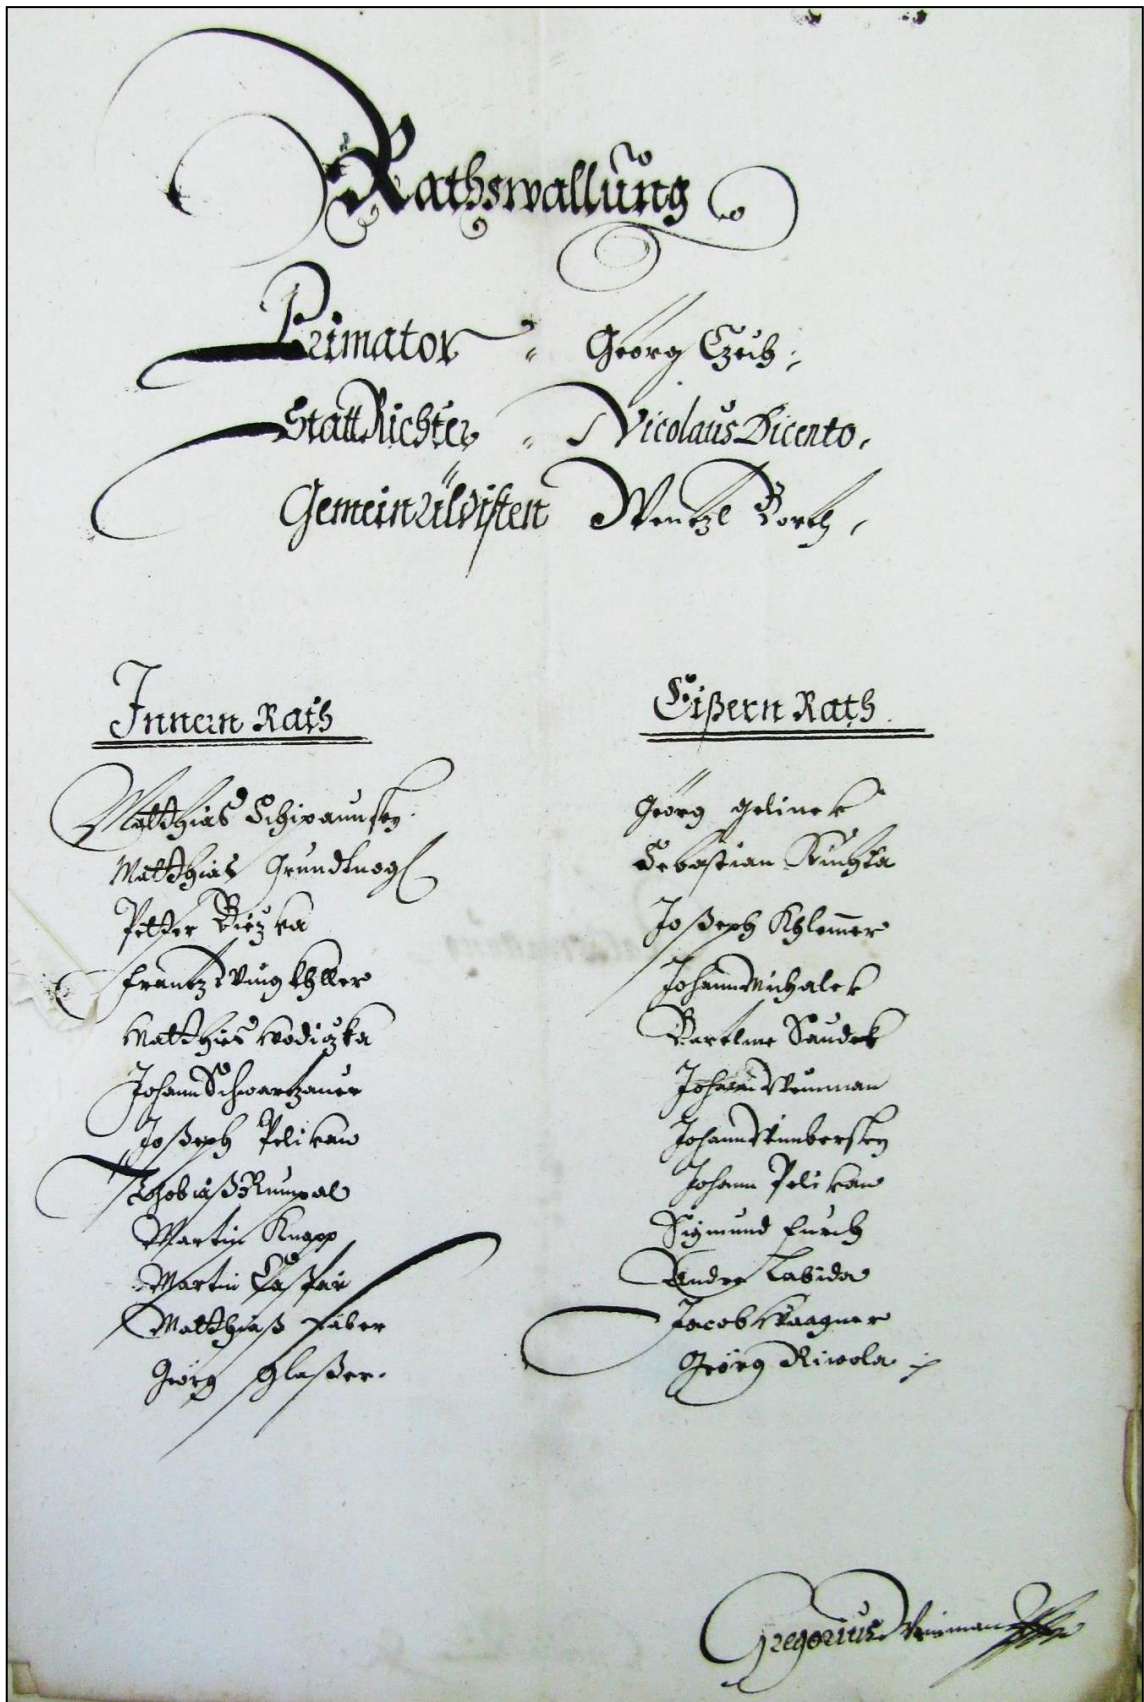 Rathswallung
Primator " Georg Czech
StattRichter " Nicolaus Dicento,
Gemein Ältisten Wentzl
Innern Rath
Matthias Schipaunsky
Matthias Grundtnogl
Petter
Frantz
Matthies Wodiczka
Johann Schwartzauer
Joßeph Pelikan
Thobiaß Rumpal
Martin Knapp
Martin Caspar
Matthiaß Faber
Georg Glaßer.
Eißern Rath.
Georg Gelinek
Sebastian Kuchta
Joßeph Khlemmer
Johann Michalek
Bartlme Saudek
Johann Neuman
Johann Winbersky
Johann Pelikan
Sigmund
Andre Labida
Jacob Waagner
Georg Riwola
Gregorius